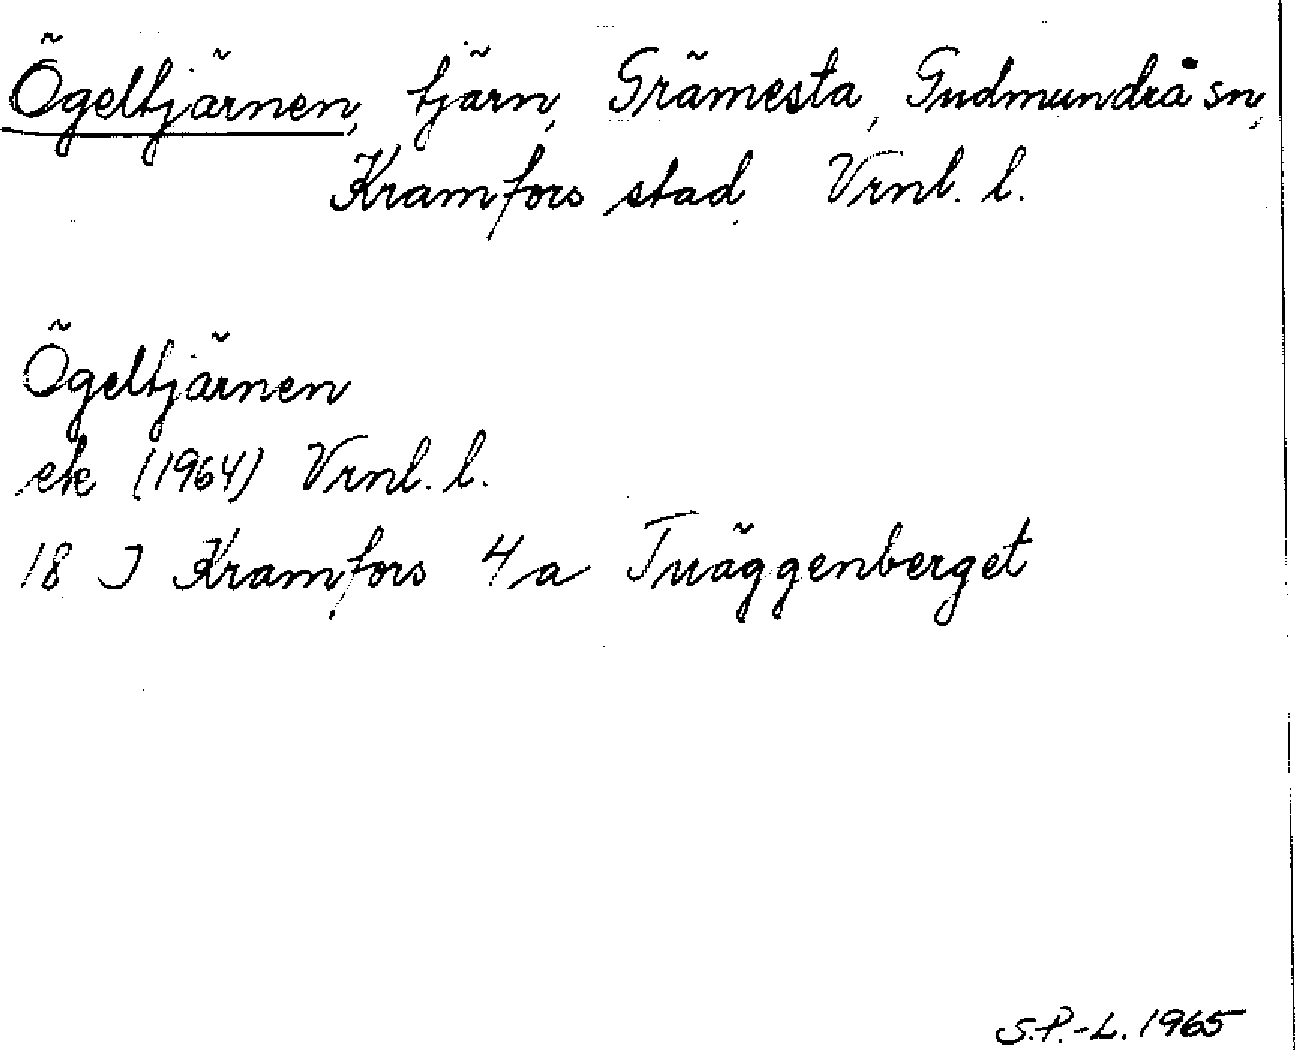 Ögeltjärnen, tjärn, Grämesta, Gudmundrå sn,
Kramfors stad, Vrnl. l.
Ögeltjärnen
ek (1964) Vrnl. l.
18 J Kramfors 4 a Tväggenberget
S.P.-L. 1965